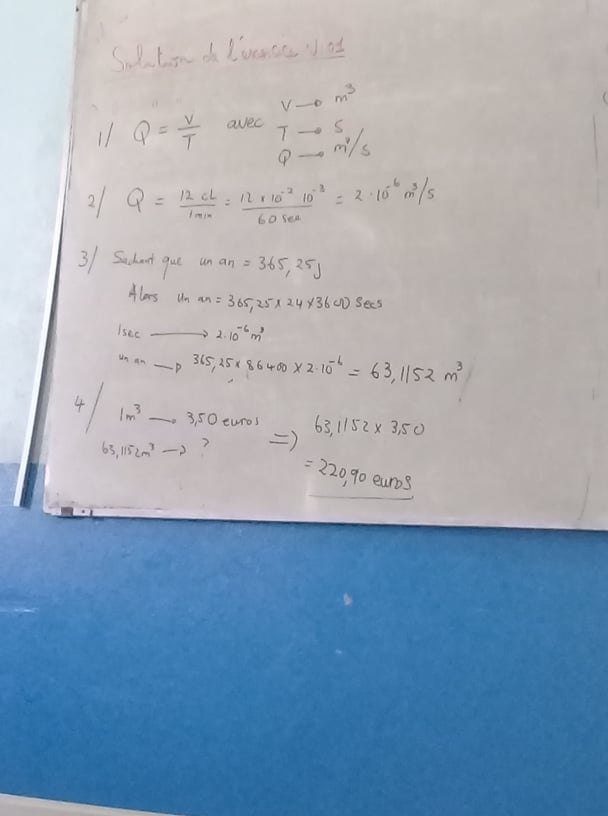 Solution de l'exercice N.01
1/ Q = V/T avec V → m³
T → s
Q → m³/s
2/ Q = 12 cL / 1 min = 12 x 10⁻² 10⁻³ / 60 sec = 2 · 10⁻⁶ m³/s
3/ Sachant que un an = 365,25 j
Alors un an = 365,25 x 24 x 3600 secs
1 sec → 2·10⁻⁶ m³
un an → 365,25 x 86400 x 2·10⁻⁶ = 63,1152 m³
4/ 1m³ → 3,50 euros
63,1152m³ → ?
=> 63,1152 x 3,50
= 220,90 euros